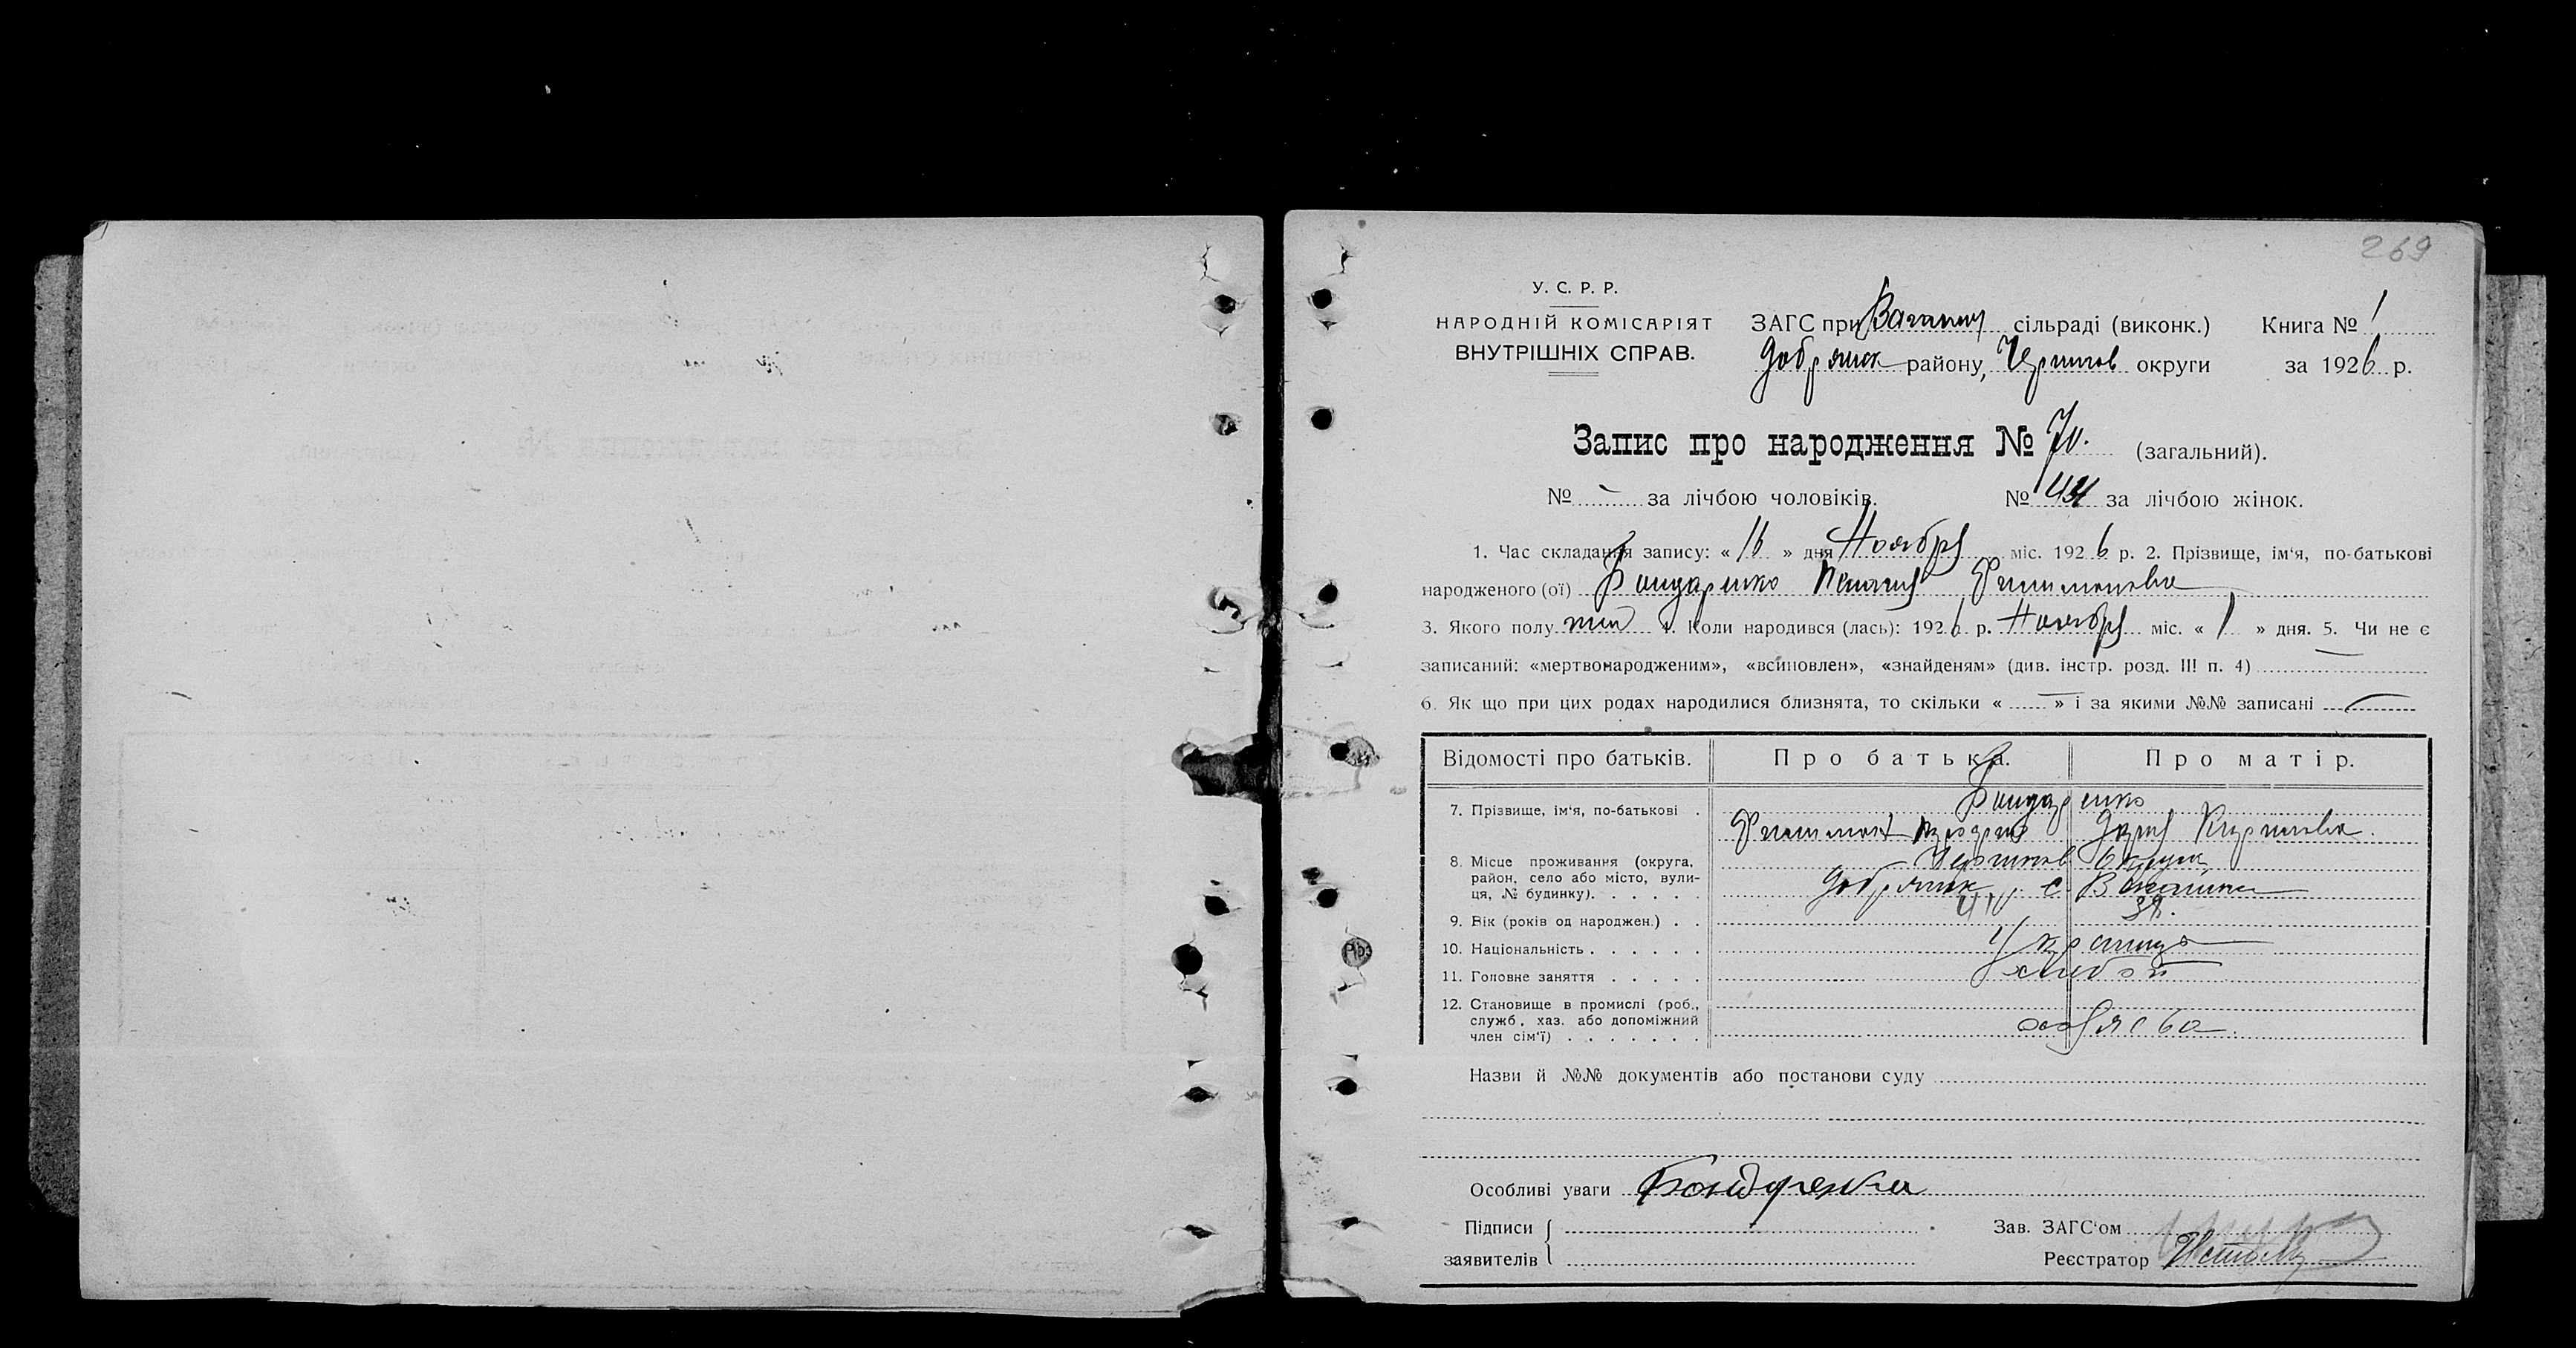 269
У. С. Р. Р.
НАРОДНІЙ КОМІСАРІЯТ
ВНУТРІШНІХ СПРАВ.
ЗАГС при сільраді (виконк.) Книга № 1
Добрянск району, Чернигов округи за 1926 р.
Запис про народження № 70. (загальний).
№ - за лічбою чоловіків. № за лічбою жінок.
1. Час складання запису: « 16 » дня Ноября міс. 1926 р. 2. Прізвище, ім‘я, по-батькові
народженого (ої) Бондаренко Филимоновна
3. Якого полу жін 4. Коли народився (лась): 1926 р. Ноября міс. « 1 » дня. 5. Чи не є
записаний: «мертвонародженим», «всиновлен», «знайденям» (див. інстр. розд. III п. 4)
6. Як що при цих родах народилися близнята, то скільки « — » і за якими №№ записані —
Відомості про батьків. Про батька. Про матір.
7. Прізвище, ім‘я, по-батькові . Бондаренко
Филимон Кирилловна.
8. Місце проживання (округа, Чернигов Округа
район, село або місто, вули- Добрянск с.
ця, № будинку). . . . . .
9. Вік (років од народжен.) . . 39.
10. Національність . . . . . . Украинцы
11. Головне заняття . . . . . хлебоп
12. Становище в промислі (роб.,
служб., хаз. або допоміжний
член сім‘ї) . . . . . . .
Назви й №№ документів або постанови суду
Особливі уваги Бондренка
Підписи
заявителів
Зав. ЗАГС‘ом
Реєстратор